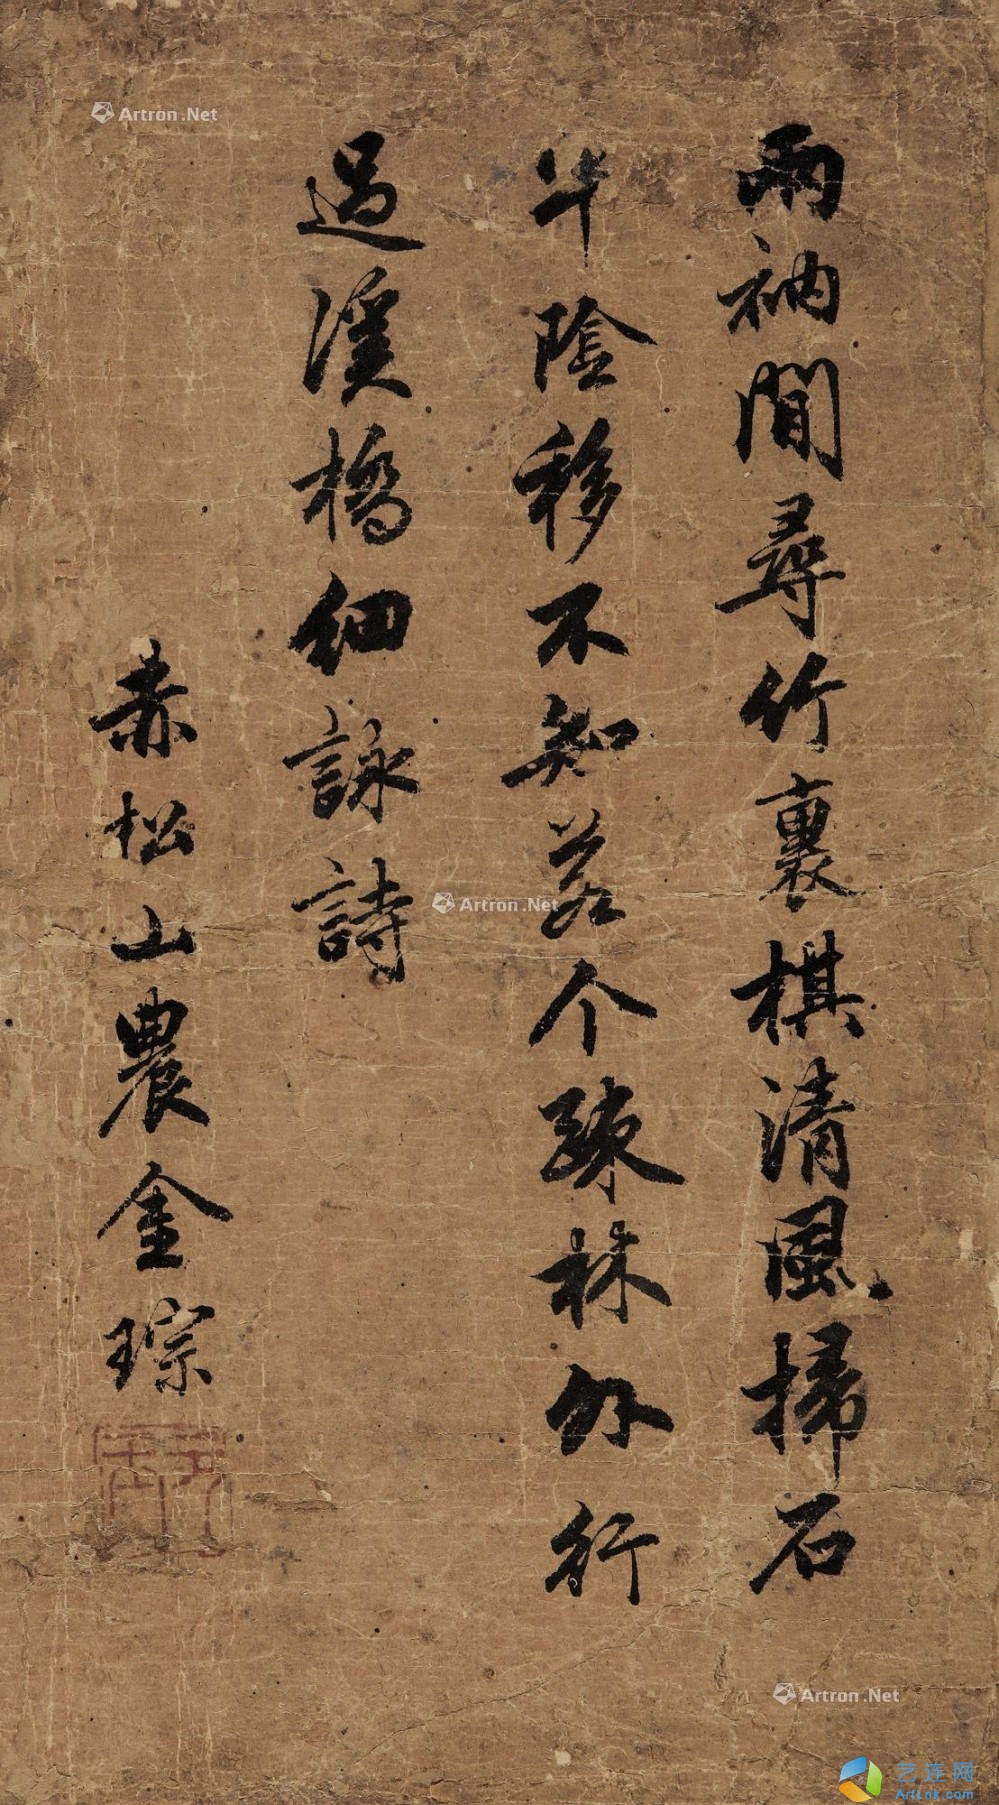 兩衲閒尋竹裏棋清風掃石
半陰移不知若个疎林外行
過溪橋細詠詩
赤松山農金琮
Artron.Net
Artron.Net
Artron.Net
艺连网
ArtLnk.com